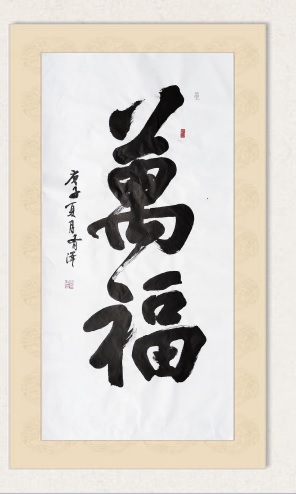 萬福
庚子夏月青澤